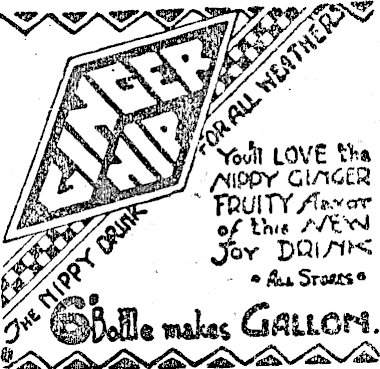 GINGER
NIP
THE NIPPY DRINK FOR ALL WEATHERS
You'll LOVE the
NIPPY GINGER
FRUITY flavor
of this NEW
JOY DRINK
• ALL STORES •
6D Bottle makes GALLON.